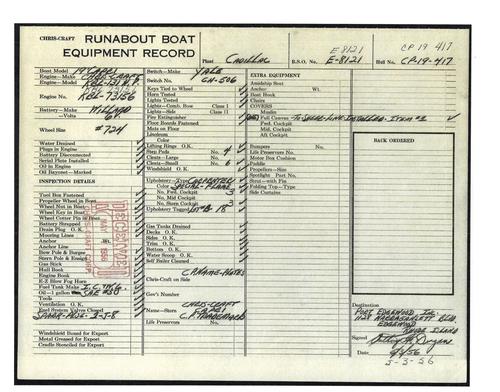 CHRIS-CRAFT RUNABOUT BOAT
EQUIPMENT RECORD
Plant CADILLAC B.S.O. No. E-8121 Hull No. CP-19-417
E8121
CP 19 417
Boat Model 19' CAPRI
Engine—Make CHRIS-CRAFT
Engine No. KBL-73156
Battery—Make WILLARD
6V
Wheel Size #724
Water Drained
Plugs in Engine
Battery Disconnected
Serial Plate Installed
Oil in Engine
Oil Bayonet—Marked
INSPECTION DETAILS
Tool Box Fastened
Propeller Wheel in Boat
Wheel Nut in Boat
Wheel Key in Boat
Wheel Cotter Pin in Boat
Battery Strapped
Drain Plug O. K.
Mooring Lines
Anchor Wt.
Anchor Line
Bow Pole & Burgee
Stern Pole & Ensign
Gas Stick
Hull Book
Engine Book
E-Z Blow Fog Horn
Fuel Tank Make
Oil—1 gallon SAE #30
Tools
Ventilation O. K.
Fuel System Valves Closed
Windshield Boxed for Export
Metal Greased for Export
Cradle Stenciled for Export
Switch—Make YALE
Switch No. CH-506
Keys Tied to Wheel
Horn Tested
Lights Tested
Lights—Comb. Bow Class I
Lights—Side Class II
Fire Extinguisher
Floor Boards Fastened
Mats on Floor
Linoleum
Color
Lifting Rings O. K.
Step Pads No. 4
Cleats—Large No.
Cleats—Small No. 6
Windshield O. K.
Upholstery—Type CARPENTER
Color SPECIAL-FLAME
No. Fwd. Cockpit 3
No. Mid Cockpit
No. Stern Cockpit 3
Upholstery Tagged
Gas Tanks Drained
Decks O. K.
Sides O. K.
Trim O. K.
Bottom O. K.
Water Scoop O. K.
Self Bailer Cleaned
Chris-Craft on Side
Gov't Number
Name—Stern CHRIS-CRAFT
CAPRI
Life Preservers No.
EXTRA EQUIPMENT
Jumpship Seat
Anchor Wt.
Boat Hook
Chairs
COVERS
Muslin
Full Canvas
Fwd. Cockpit
Mid. Cockpit
Aft Cockpit
Bumpers No.
Life Preservers No.
Motor Box Cushion
Paddle
Propellers—Size
Spotlight Port No.
Strut—with Pin
Folding Top—Type
Side Curtains
BACK ORDERED
Destination
PORT EDGEWOOD INC.
1128 NARRAGANSETT BLVD.
EDGEWOOD
RHODE ISLAND
Signed
Date
5-3-56
RECEIVED